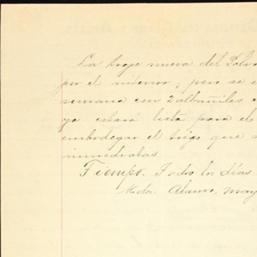 La troje nueva del Salva
por el interior, pero se e
semana con 2 albañiles
ya estará lista para el
embodegar el trigo que
inmediatas.
Tiempo. Todos los días
Hda. Alamo, may